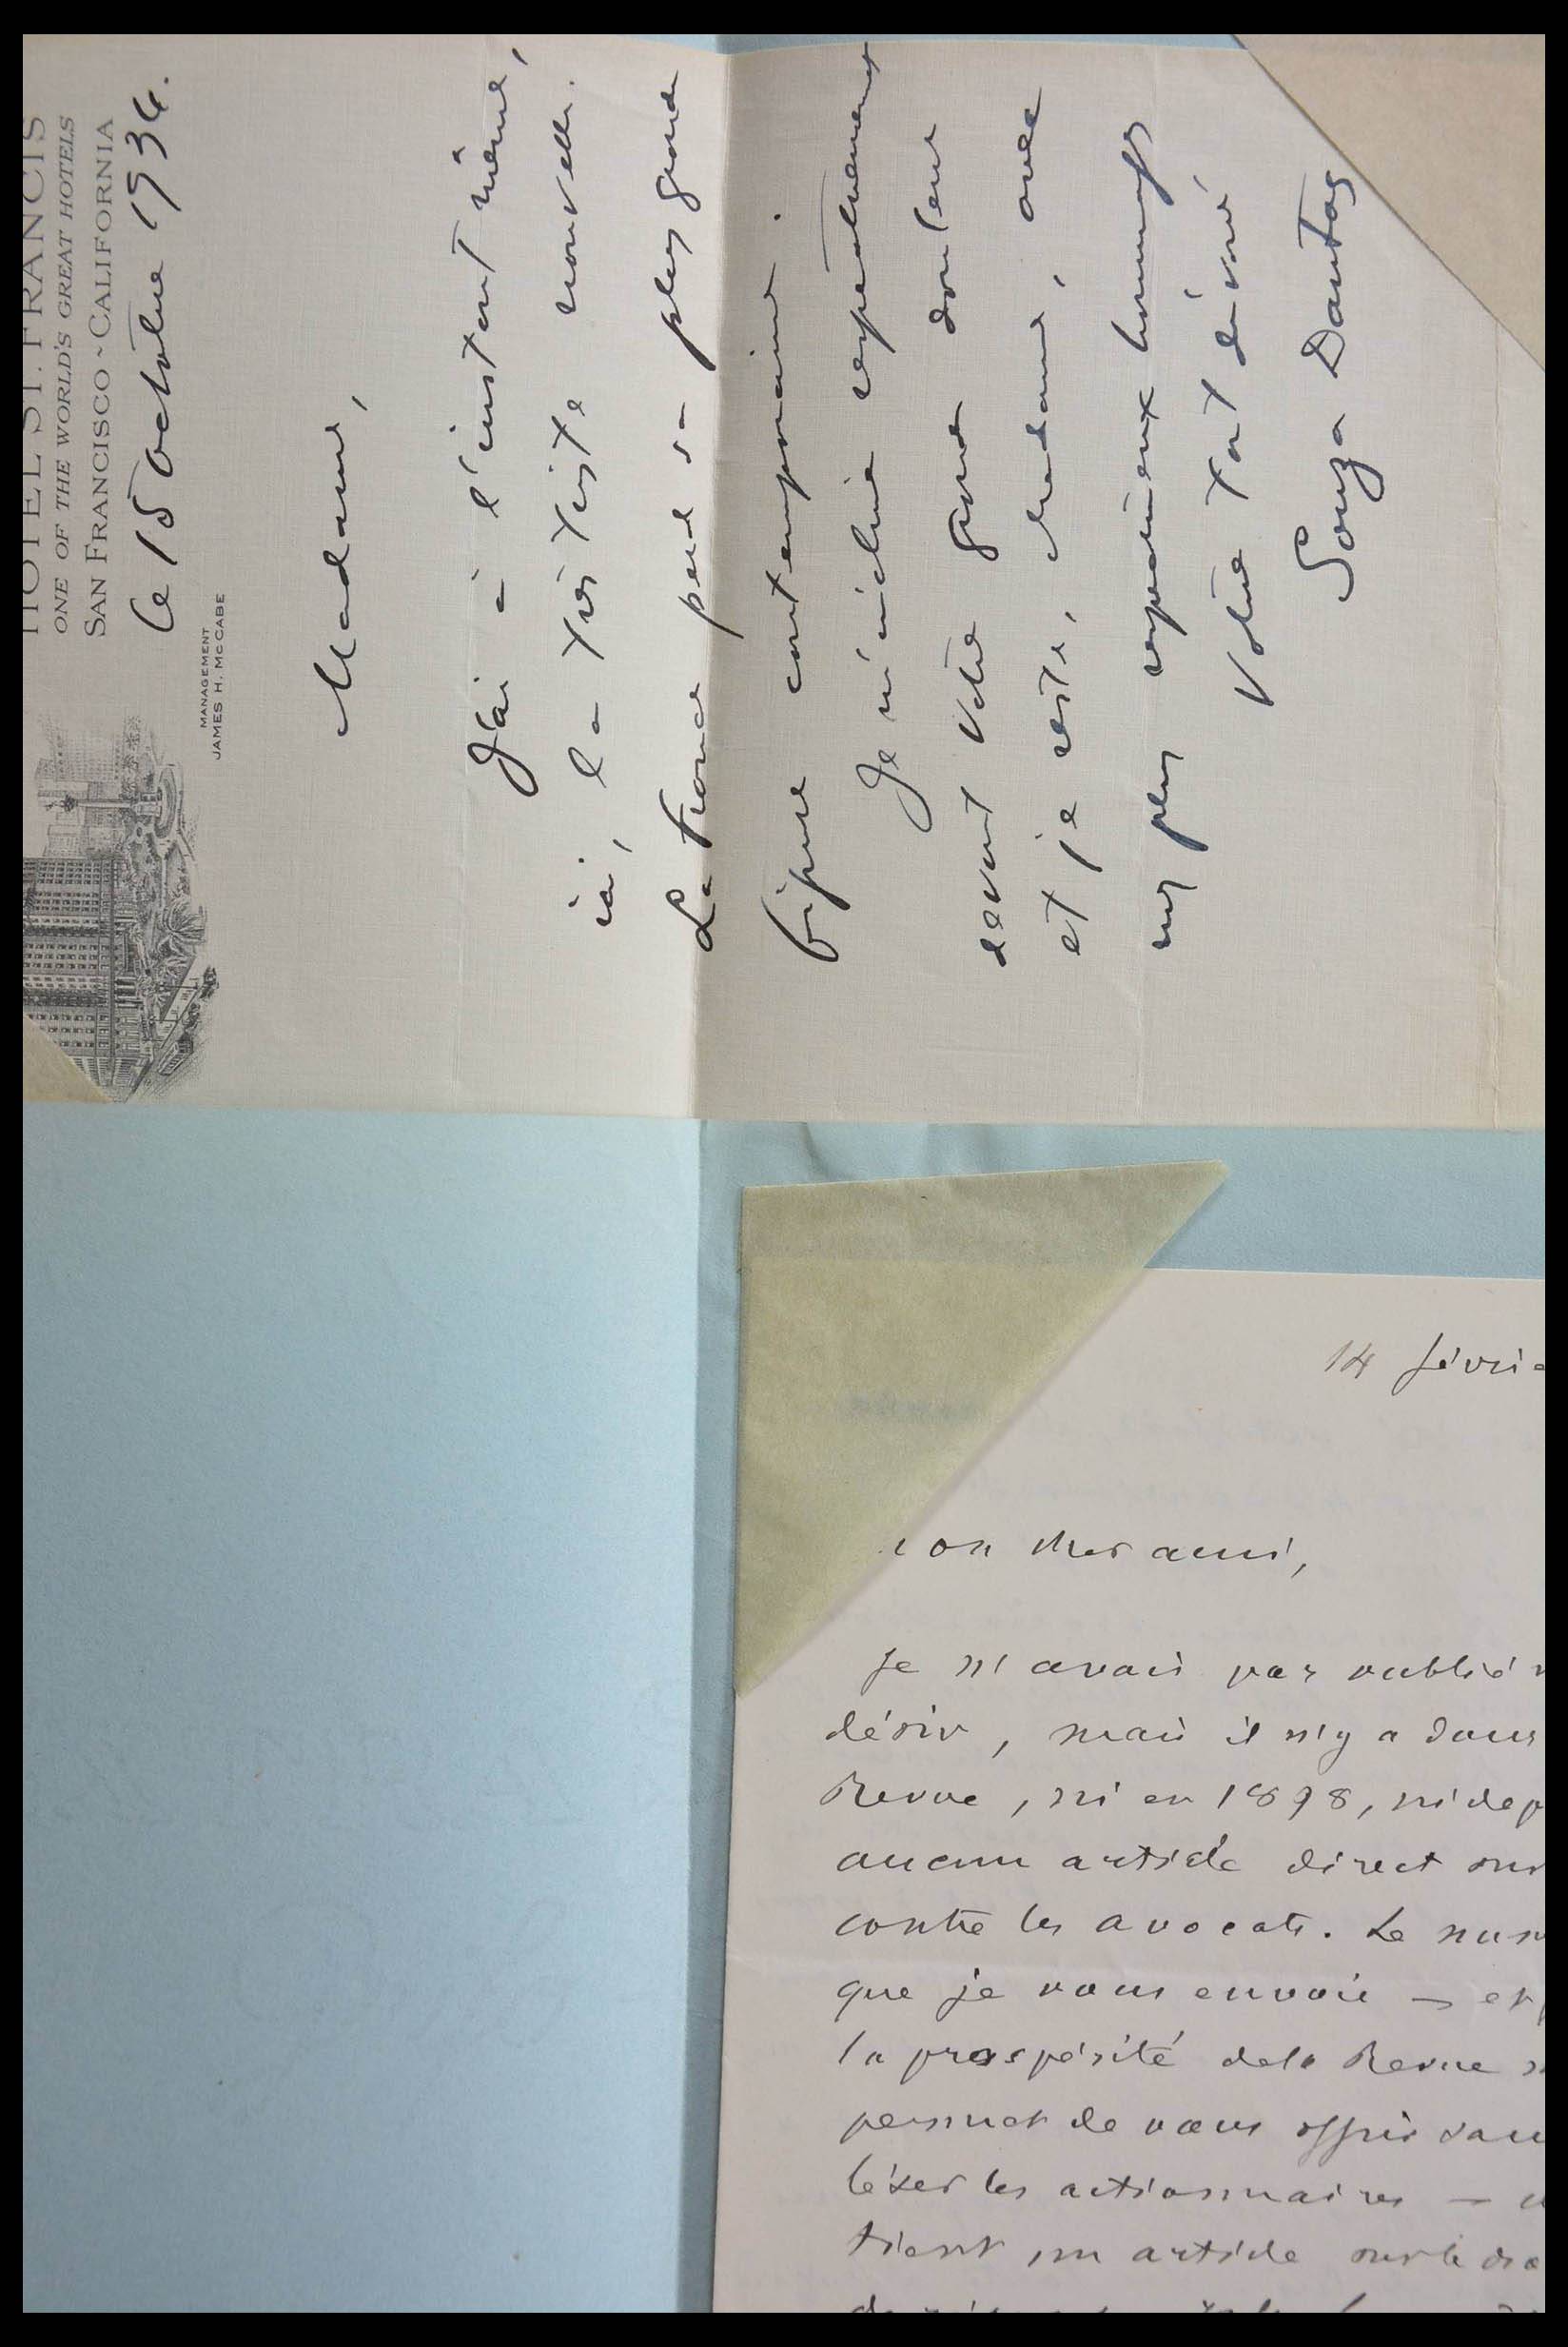 HOTEL ST. FRANCIS
ONE OF THE WORLD'S GREAT HOTELS
SAN FRANCISCO ~ CALIFORNIA
MANAGEMENT
JAMES H. McCABE
le 15 octobre 1934.
Madame,
J'ai à l'instant même,
ici, la très triste nouvelle.
La France perd sa plus grande
figure contemporaine.
Je m'incline respectueusement
devant votre grande douleur
et je reste, Madame, avec
mes plus respectueux hommages
Votre tout dévoué
Souza Dantas
14 févrie
on cher ami,
Je n'avais pas oublié
désir, mais il n'y a dans
Revue, ni en 1898, ni dep
aucun article direct sur
contre les avocats. Le num
que je vous envoie – et
la prospérité de la Revue
permet de vous offrir san
léser les actionnaires –
tient un article sur le